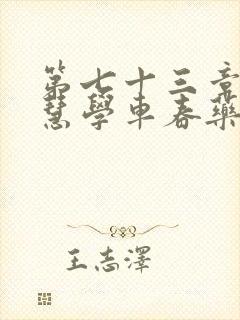 第七十三章
慧學車春藥
王志澤